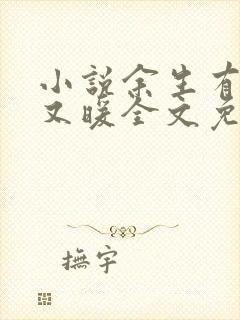 小说余生有
又暖全文免
撫宇